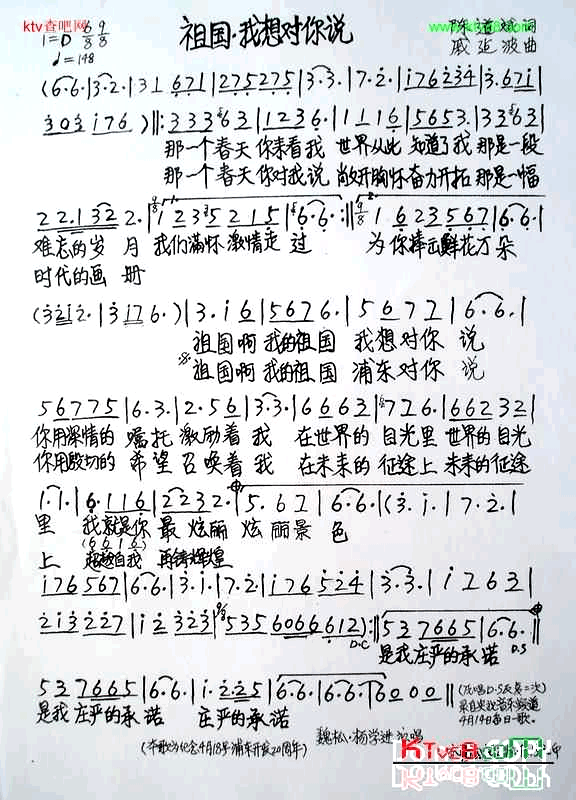 ktv查吧网
www.ktv8.com
祖国·我想对你说
1=D 6/8 9/8
♩=148
陈道斌 词
戚建波 曲
(6.6.|3.2.|31 671|275275|3.3.|7.2.|176234|3.671|
303176)‖:33363|1236.|1116|5653.|33363|
那一个春天你来看我 世界从此 知道了我 那是一段
那一个春天你对我说 敞开胸怀奋力开拓 那是一幅
22.1322.|123521 5|6.6.:‖1 623567|6.6.|
难忘的岁 月 我们满怀激情走 过 为你捧出鲜花万朵
时代的画 册
(3212.|3176.)|3.16|5676.|5 677|6.6.|
祖国啊 我的祖国 我想对你 说
祖国啊 我的祖国 浦东对你 说
56775|6.3.|2.56|3.3.|66663|7726.|66232|
你用深情的 嘱托 激励着 我 在世界的 目光里 世界的目光
你用殷切的 希望 召唤着 我 在未来的 征途上 未来的征途
1.1.|6.116|2232.|5.67|6.6.|(3.1.|7.2.|
里 我就是你 最 炫丽 炫丽景 色
(6616)
上 超越自我 再铸辉煌
176567|6.6.|3.1.|7.2|176524|3.3.|1763|
213227|12323|5356066612):‖537665|6.6.‖
D.C
D.S
是我庄严的承 诺
537665|6.6.|1.225|6.6.|6.6.|6000‖
是我庄严的承 诺 庄严的承 诺
(反唱D.S反复二次)
4月19日每日一歌。
魏松·杨学进 演唱
(本歌为纪念4月18号浦东开发20周年)
KTV8.com